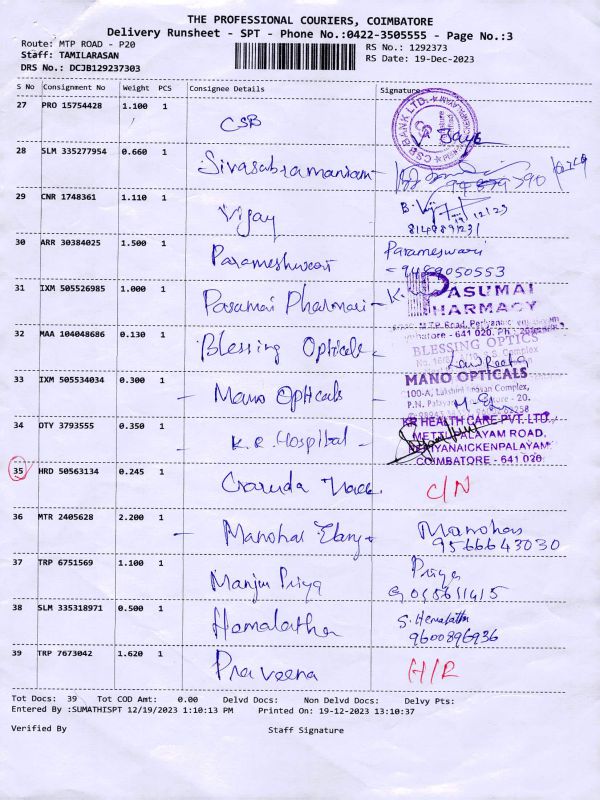 THE PROFESSIONAL COURIERS, COIMBATORE
Delivery Runsheet - SPT - Phone No.:0422-3505555 - Page No.:3
Route: MTP ROAD - P20 RS No.: 1292373
Staff: TAMILARASAN RS Date: 19-Dec-2023
DRS No.: DCJB129237303
S No Consignment No Weight PCS Consignee Details Signature
27 PRO 15754428 1.100 1 CSB
CSB BANK LTD.
28 SLM 335277954 0.660 1 Sivasubramaniam
29 CNR 1748361 1.110 1 Vijay
30 ARR 30384025 1.500 1 Parameshwari Parameswari
31 IXM 505526985 1.000 1 Pasumai Pharmaci
PASUMAI
PHARMACY
32 MAA 104048686 0.130 1 Blessing Opticals
BLESSING OPTICS
33 IXM 505534034 0.300 1 - Mano Opticals
MANO OPTICALS
34 OTY 3793555 0.350 1 - K.R. Hospital -
KR HEALTH CARE PVT. LTD.
METTUPALAYAM ROAD,
PERIYANAICKENPALAYAM
COIMBATORE - 641 020
35 HRD 50563134 0.245 1 Garuda Trade C/N
36 MTR 2405628 2.200 1 - Manohar Manohar
9566643030
37 TRP 6751569 1.100 1 Manju Priya Priya
38 SLM 335318971 0.500 1 Hemalatha S. Hemalatha
9600896936
39 TRP 7673042 1.620 1 Praveena H/R
Tot Docs: 39 Tot COD Amt: 0.00 Delvd Docs: Non Delvd Docs: Delvy Pts:
Entered By :SUMATHISPT 12/19/2023 1:10:13 PM Printed On: 19-12-2023 13:10:37
Verified By Staff Signature